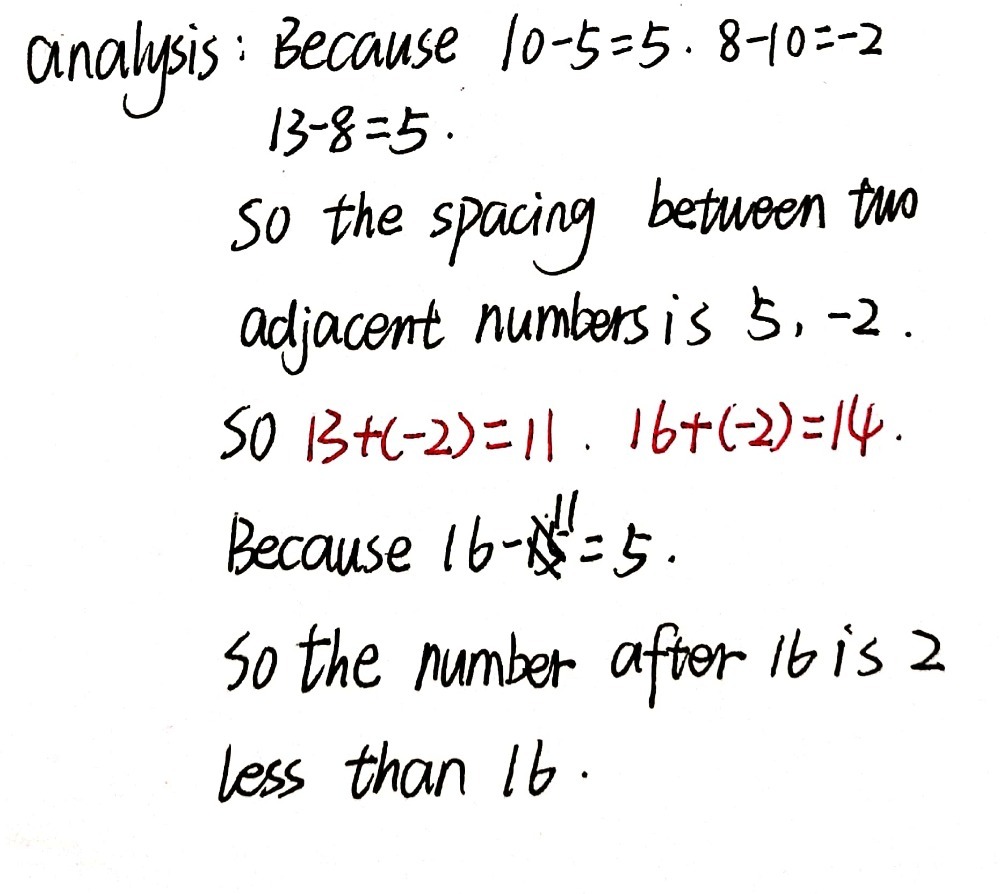 analysis: Because 10-5=5. 8-10=-2
13-8=5.
So the spacing between two
adjacent numbers is 5, -2.
So 13+(-2)=11. 16+(-2)=14.
Because 16-11=5.
So the number after 16 is 2
less than 16.